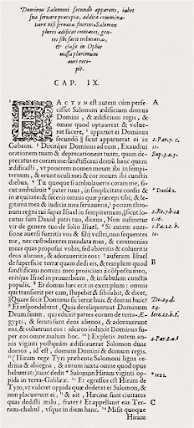 Dominus Salomoni secundò apparens, iubet
sua seruare præcepta, addita commina-
tione nisi seruata fuerint. Salomon
plures ædificat ciuitates, gen-
tes sibi facit tributarias,
et classe in Ophir
missa plurimum
auri reci-
pit.
CAP. IX.
FACTVM est autem cùm perfe-
cisset Salomon ædificium domus
Domini, & ædificium regis, &
omne quod optauerat & volue-
rat facere, apparuit ei Dominus
secundò sicut apparuerat ei in
Gabaon. Dixítque Dominus ad eum, Exaudiui
orationem tuam & deprecationem tuam, quam de-
precatus es coram me: sanctificaui domum hanc quam
ædificasti, vt ponerem nomen meum ibi in sempi-
ternum, & erunt oculi mei & cor meum ibi cunctis
diebus. Tu quoque si ambulaueris coram me, si-
cut ambulauit pater tuus, in simplicitate cordis &
in æquitate: & feceris omnia quæ præcepi tibi, & le-
gitima mea & iudicia mea seruaueris, ponam thro-
num regni tui super Israel in sempiternum, sicut lo-
cutus sum Dauid patri tuo, dicens, Non auferetur
vir de genere tuo de solio Israel. Si autem auer-
sione auersi fueritis vos & filij vestri, non sequentes
me, nec custodientes mandata mea, & ceremonias
meas quas proposui vobis, sed abieritis & colueritis
deos alienos & adoraueritis eos: auferam Israel
de superficie terræ quam dedi eis, & templum quod
sanctificaui nomini meo proijciam à conspectu meo,
erítque Israel in prouerbium, & in fabulam cunctis
populis. Et domus hæc erit in exemplum: omnis
qui transierit per eam, stupebit & sibilabit, & dicet,
Quare fecit Dominus sic terræ huic & domui huic?
Et respondebunt, Quia dereliquerunt Dominum
Deum suum, qui eduxit patres eorum de terra Æ-
gypti, & secuti sunt deos alienos, & adorauerunt
eos, & coluerunt eos: idcirco induxit Dominus su-
per eos omne malum hoc. Expletis autem an-
nis viginti postquam ædificauerat Salomon duas
domos, id est, domum Domini & domum regis,
Hiram rege Tyri præbente Salomoni ligna ce-
drina & abiegna, & aurum iuxta omne quod opus
habuerat: tunc dedit Salomon Hiram viginti op-
pida in terra Galilææ. Et egressus est Hiram de
Tyro, vt videret oppida quæ dederat ei Salomon, &
non placuerunt ei, & ait, Hæccine sunt ciuitates
quas dedisti mihi, frater? Et appellauit eas Ter-
ram-chabul, vsque in diem hanc. Misit quoque
Hiram